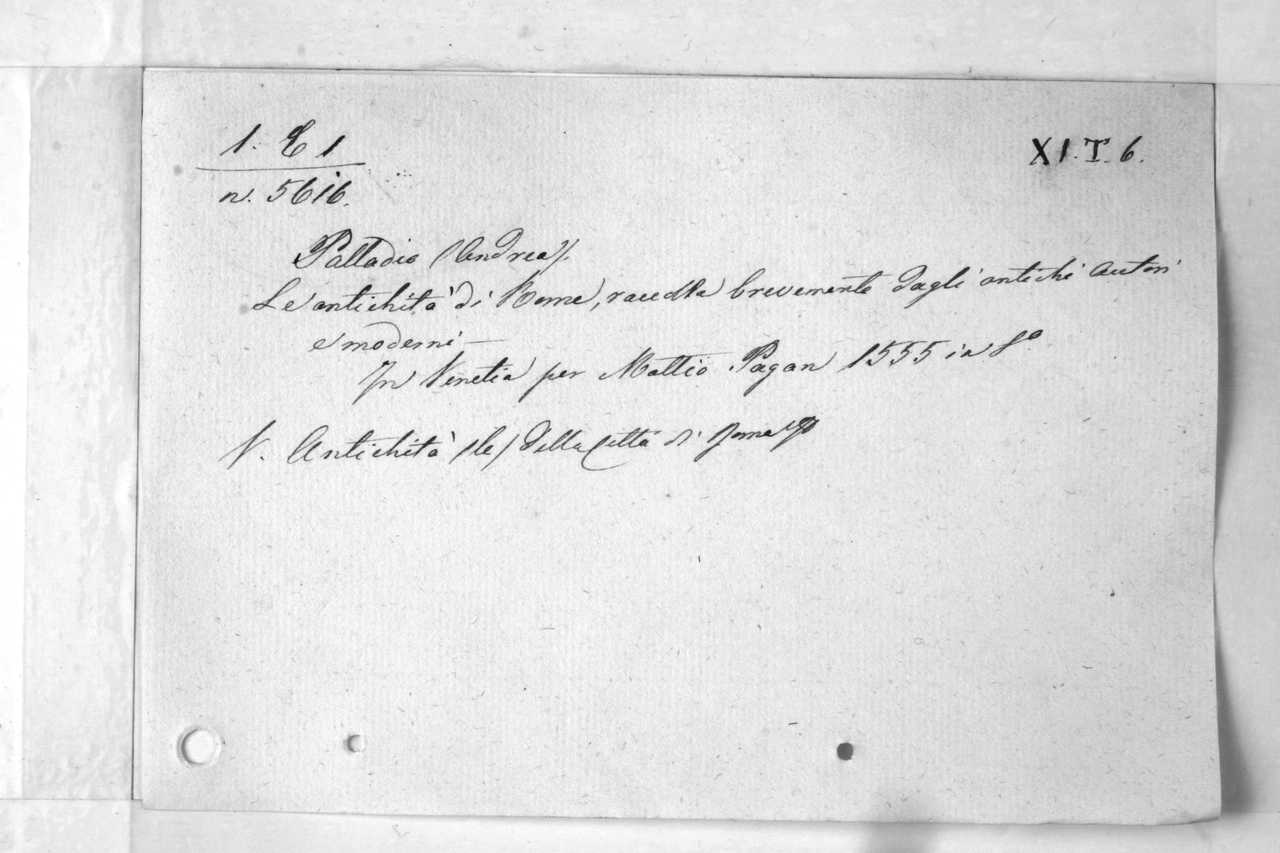 1. E 1
XI. T. 6.
n. 5616.
Palladio (Andrea).
Le antichità di Roma, raccolta brevemente dagli antichi Autori
e moderni —
In Venetia per Mattio Pagan 1555 in 8°
V. Antichità (le) della Città di Roma